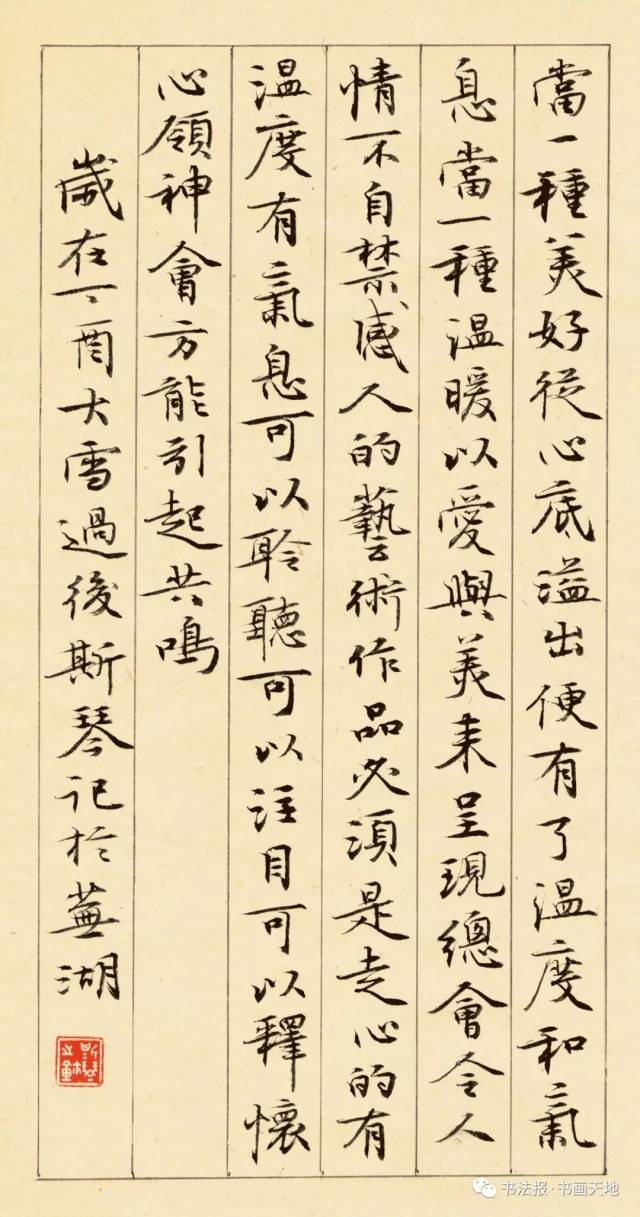 當一種美好從心底溢出便有了温度和氣
息當一種温暖以愛與美来呈現總會令人
情不自禁感人的藝術作品必須是走心的有
温度有氣息可以聆聽可以注目可以釋懷
心領神會方能引起共鳴
歲在丁酉大雪過後斯琴記於蕪湖
书法报·书画天地